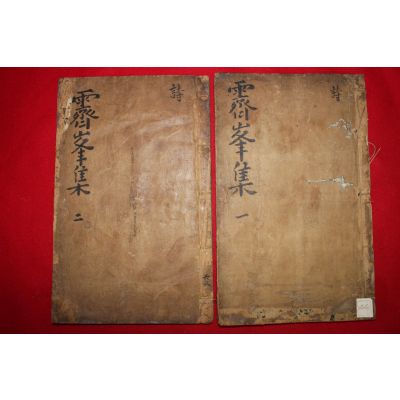 詩
霽峯集 一
詩
霽峯集 二